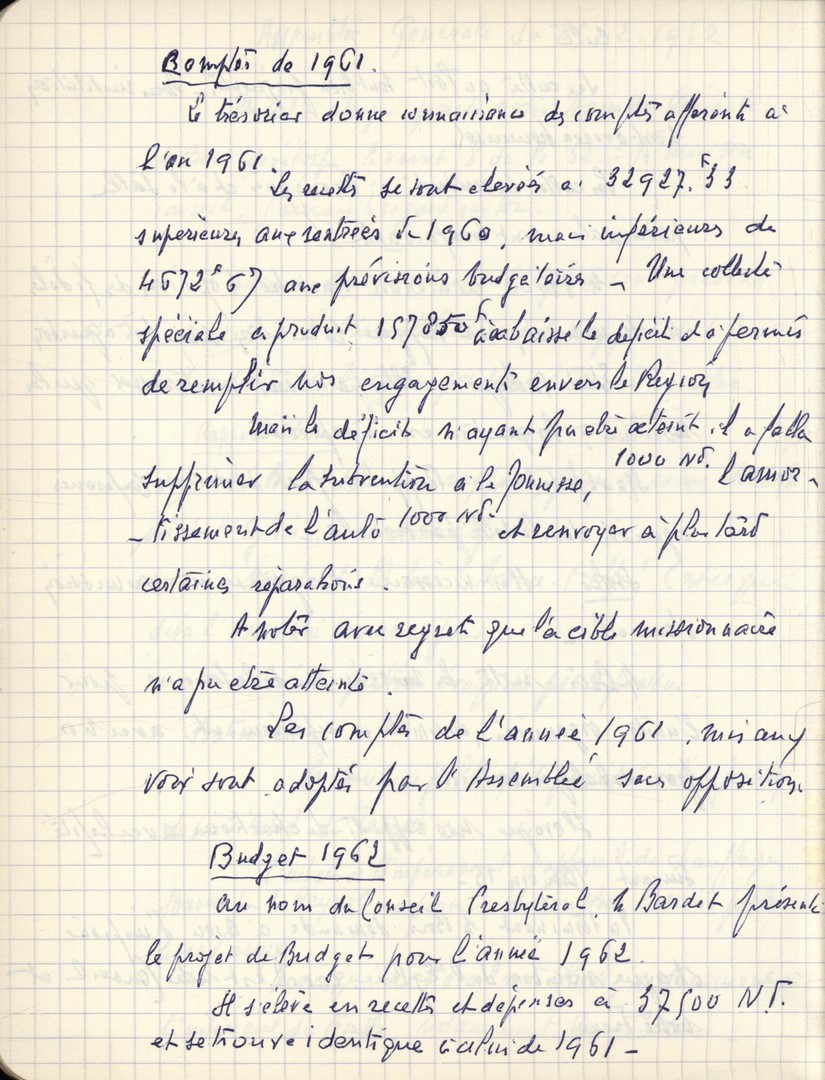 Comptes de 1961.
Le trésorier donne connaissance des comptes afférents à
l'an 1961.
Les recettes se sont élevées à 32927.F33
supérieures aux rentrées de 1960, mais inférieures de
4572F67 aux prévisions budgétaires – Une collecte
spéciale a produit 157850F a abaissé le déficit et a permis
de remplir nos engagements envers la Région
Mais le déficit n'ayant pu être éteint il a fallu
supprimer la subvention à la Jeunesse, 1000 NF. l'amor-
-tissement de l'auto 1000 NF. et renvoyer à plus tard
certaines réparations.
A noter avec regret que la cible missionnaire
n'a pu être atteinte.
Les comptes de l'année 1961, mis aux
voix sont adoptés par l'Assemblée sans opposition.
Budget 1962
Au nom du Conseil Presbytéral, Bardet présente
le projet de Budget pour l'année 1962.
Il s'élève en recettes et dépenses à 37500 NF.
et se trouve identique à celui de 1961 –